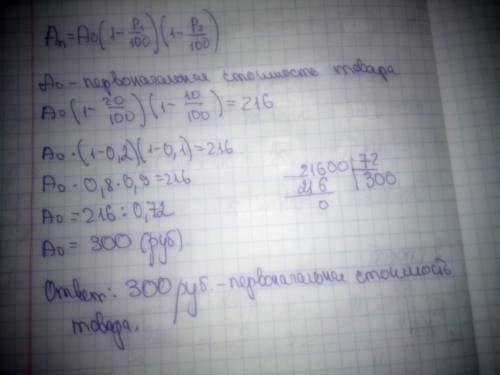 Aₙ=A₀(1-P₁/100)(1-P₂/100)
A₀ - первоначальная стоимость товара
A₀(1-20/100)(1-10/100)=216
A₀·(1-0,2)(1-0,1)=216
A₀·0,8·0,9=216
A₀=216:0,72
A₀=300(руб)
21600|72
216
300
0
Ответ: 300 руб. - первоначальная стоимость
товара.